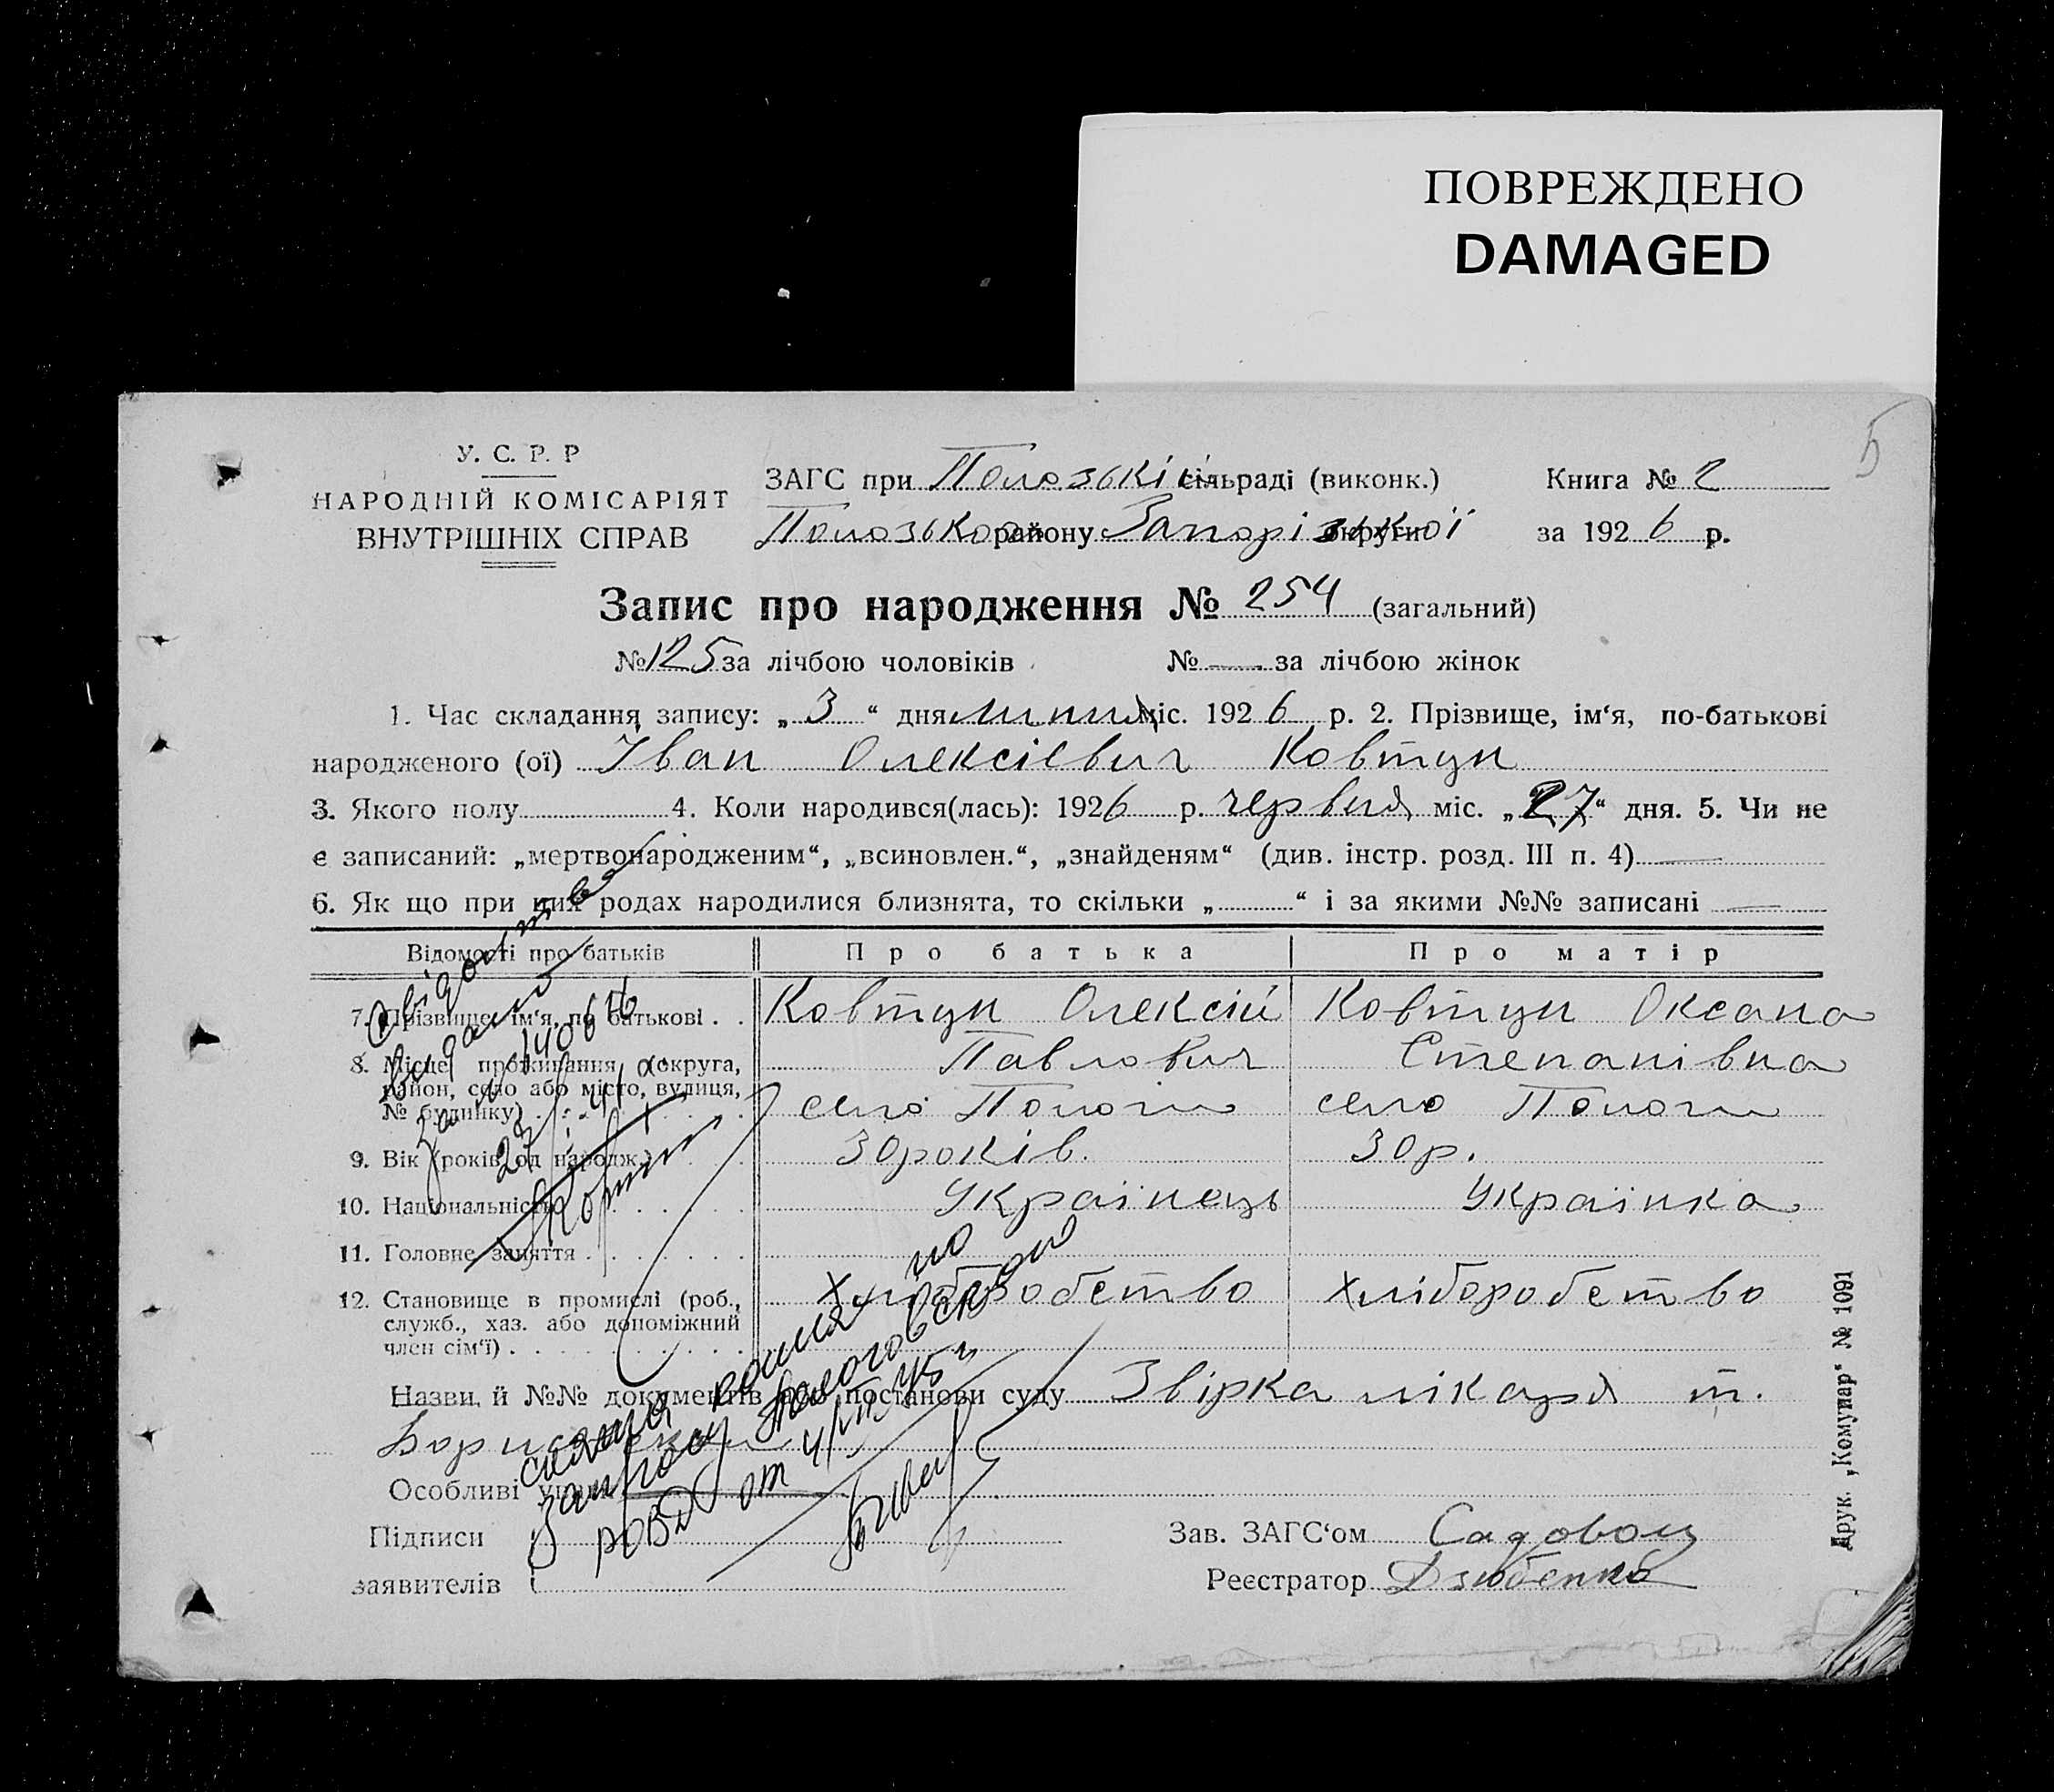 ПОВРЕЖДЕНО
DAMAGED
5
У. С. Р. Р
НАРОДНІЙ КОМІСАРІЯТ
ВНУТРІШНІХ СПРАВ
ЗАГС при Пологзькій сільраді (виконк.)
Книга № 2
Пологзького району Запорізької округи
за 1926 р.
Запис про народження № 254 (загальний)
№ 125 за лічбою чоловіків № — за лічбою жінок
1. Час складання запису: „ 3 “ дня липня міс. 1926 р. 2. Прізвище, ім‘я, по-батькові
народженого (ої) Іван Олексієвич Ковтун
3. Якого полу 4. Коли народився(лась): 1926 р. червня міс. „ 27 “ дня. 5. Чи не
є записаний: „мертвонародженим“, „всиновлен.“, „знайденям“ (див. інстр. розд. III п. 4) —
6. Як що при цих родах народилися близнята, то скільки „ “ і за якими №№ записані —
Відомості про батьків Про батька Про матір
7. Прізвище, ім‘я, по батькові . . Ковтун Олексій Ковтун Оксана
Павлович Степанівна
8. Місце проживання (округа,
район, село або місто, вулиця,
№ будинку) село Пологи село Пологи
9. Вік (років од народж.) 30 років. 30 р.
10. Національність Українець Українка
11. Головне заняття
хліборобство хліборобство
12. Становище в промислі (роб.,
служб., хаз. або допоміжний
член сім‘ї)
Назви й №№ документів або постанови суду Звірка лікаря т.
Особливі
Підписи
заявителів
Зав. ЗАГС‘ом Садовой
Реєстратор Дзюбенко
Друк. „Комунар“ № 1091